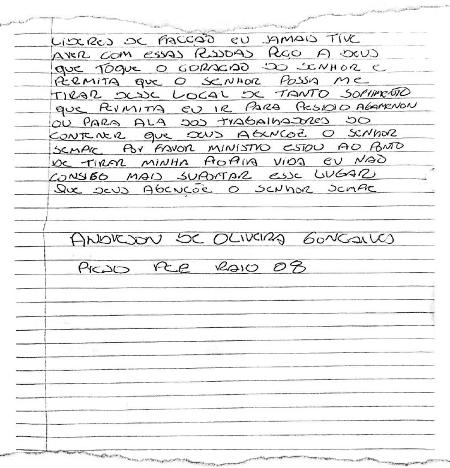 LIDERES DE FACCÃO EU JAMAIS TIVE
AVER COM ESSAS PESSOAS PEÇO A DEUS
QUE TOQUE O CORACAO DO SENHOR E
PERMITA QUE O SENHOR POSSA ME
TIRAR DESSE LOCAL DE TANTO SOFRIMENTO
QUE PERMITA EU IR PARA PESIDIO AGAMENON
OU PARA ALA DOS TRABALHADORES DO
CONTENER QUE DEUS ABENÇOÊ O SENHOR
SEMPRE POR FAVOR MINISTRO ESTOU AO PONTO
DE TIRAR MINHA PROPIA VIDA EU NÃO
CONSIGO MAIS SUPORTAR ESSE LUGAR
QUE DEUS ABENÇOÊ O SENHOR SEMPRE
ANDERSON DE OLIVEIRA GONCALVES
PRESO PCE RAIO 08